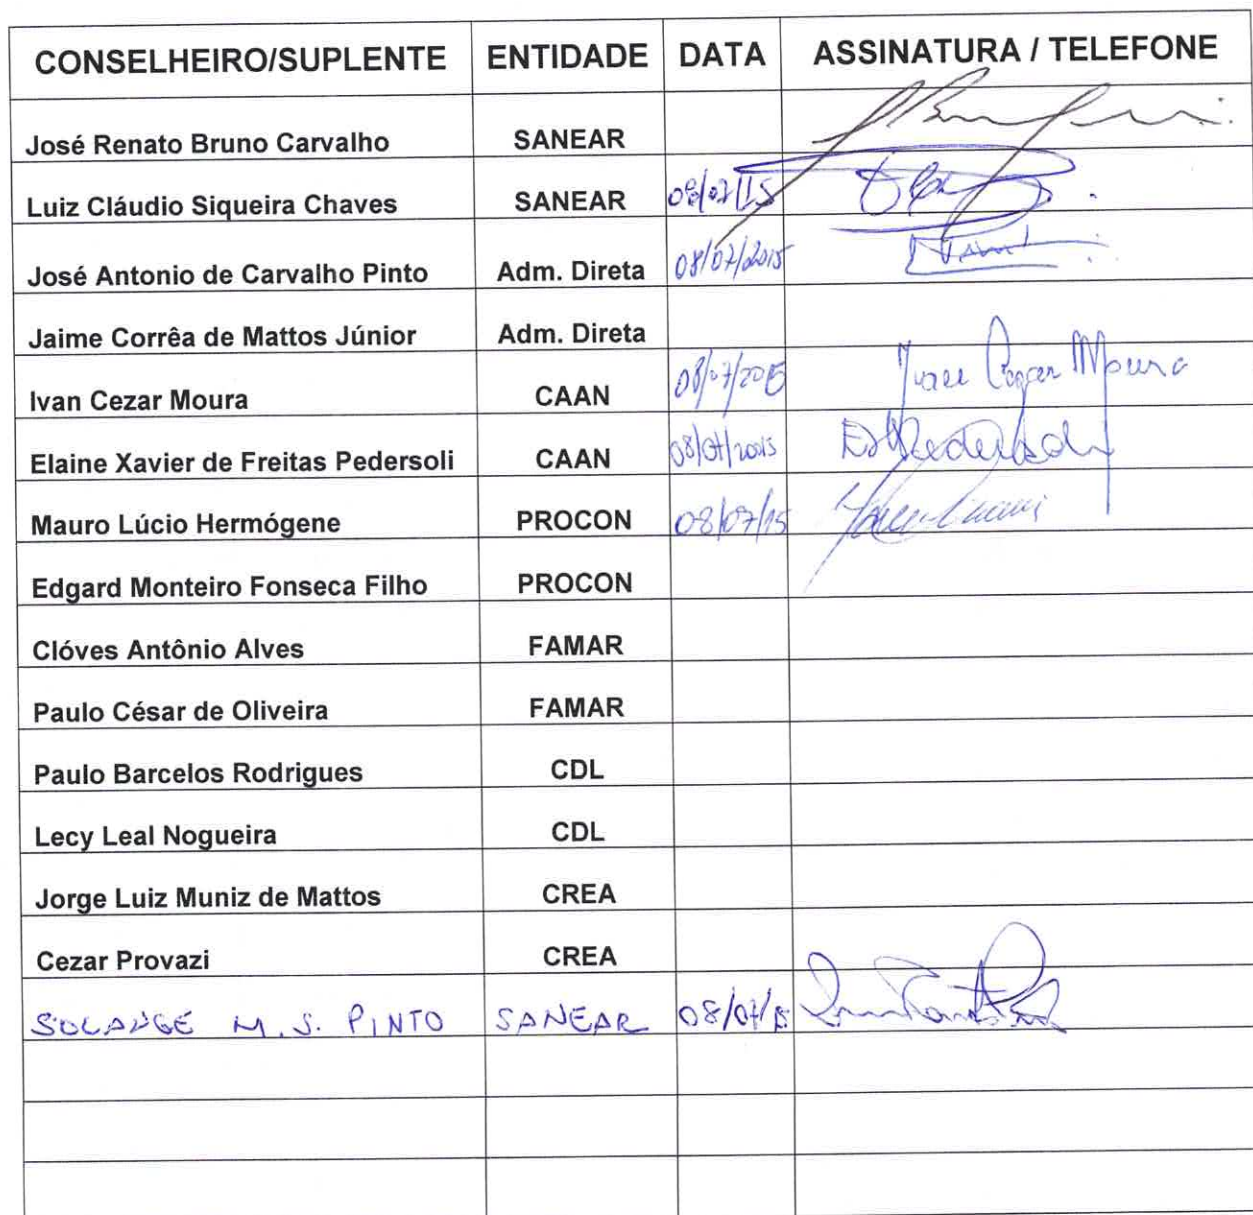 CONSELHEIRO/SUPLENTE ENTIDADE DATA ASSINATURA / TELEFONE
José Renato Bruno Carvalho SANEAR
Luiz Cláudio Siqueira Chaves SANEAR 08/07/15
José Antonio de Carvalho Pinto Adm. Direta 08/07/2015
Jaime Corrêa de Mattos Júnior Adm. Direta
Ivan Cezar Moura CAAN 08/07/2015 Ivan Cezar Moura
Elaine Xavier de Freitas Pedersoli CAAN 08/07/2015 Pedersoli
Mauro Lúcio Hermógene PROCON 08/07/15
Edgard Monteiro Fonseca Filho PROCON
Clóves Antônio Alves FAMAR
Paulo César de Oliveira FAMAR
Paulo Barcelos Rodrigues CDL
Lecy Leal Nogueira CDL
Jorge Luiz Muniz de Mattos CREA
Cezar Provazi CREA
SOLANGE M. S. PINTO SANEAR 08/07/15